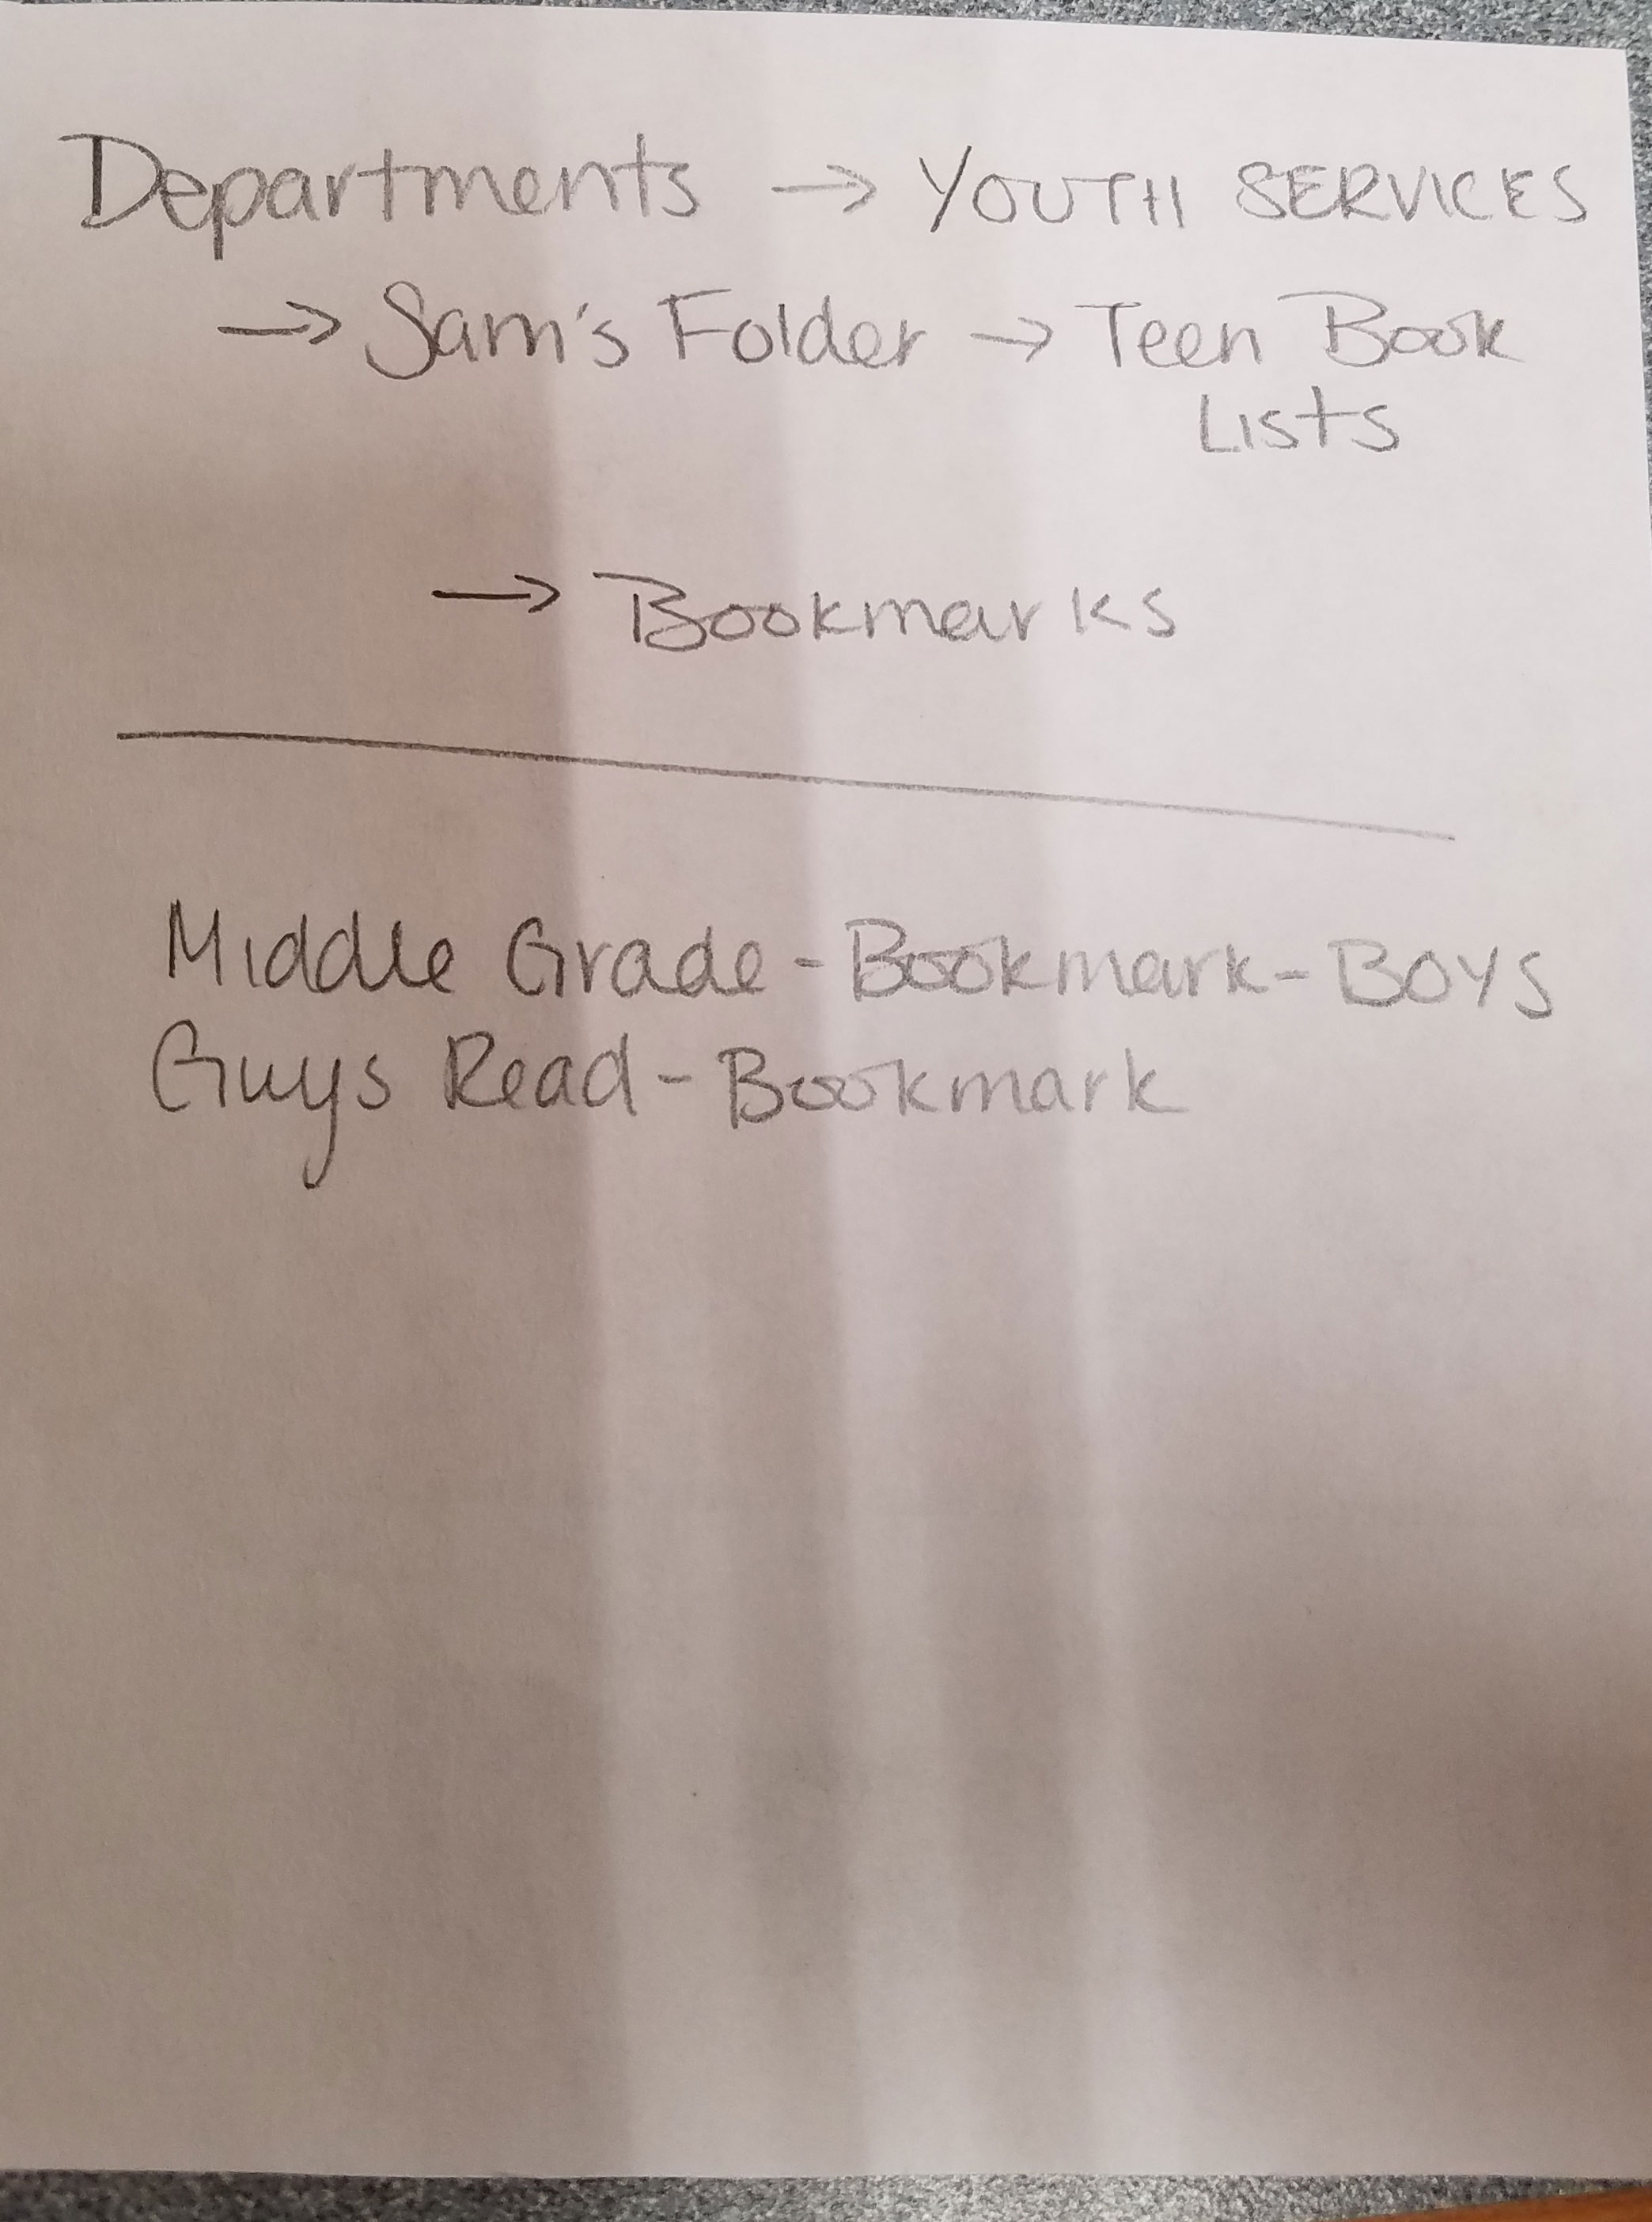 Departments → YOUTH SERVICES
→ Sam's Folder → Teen Book
Lists
→ Bookmarks
Middle Grade - Bookmark - Boys
Guys Read - Bookmark